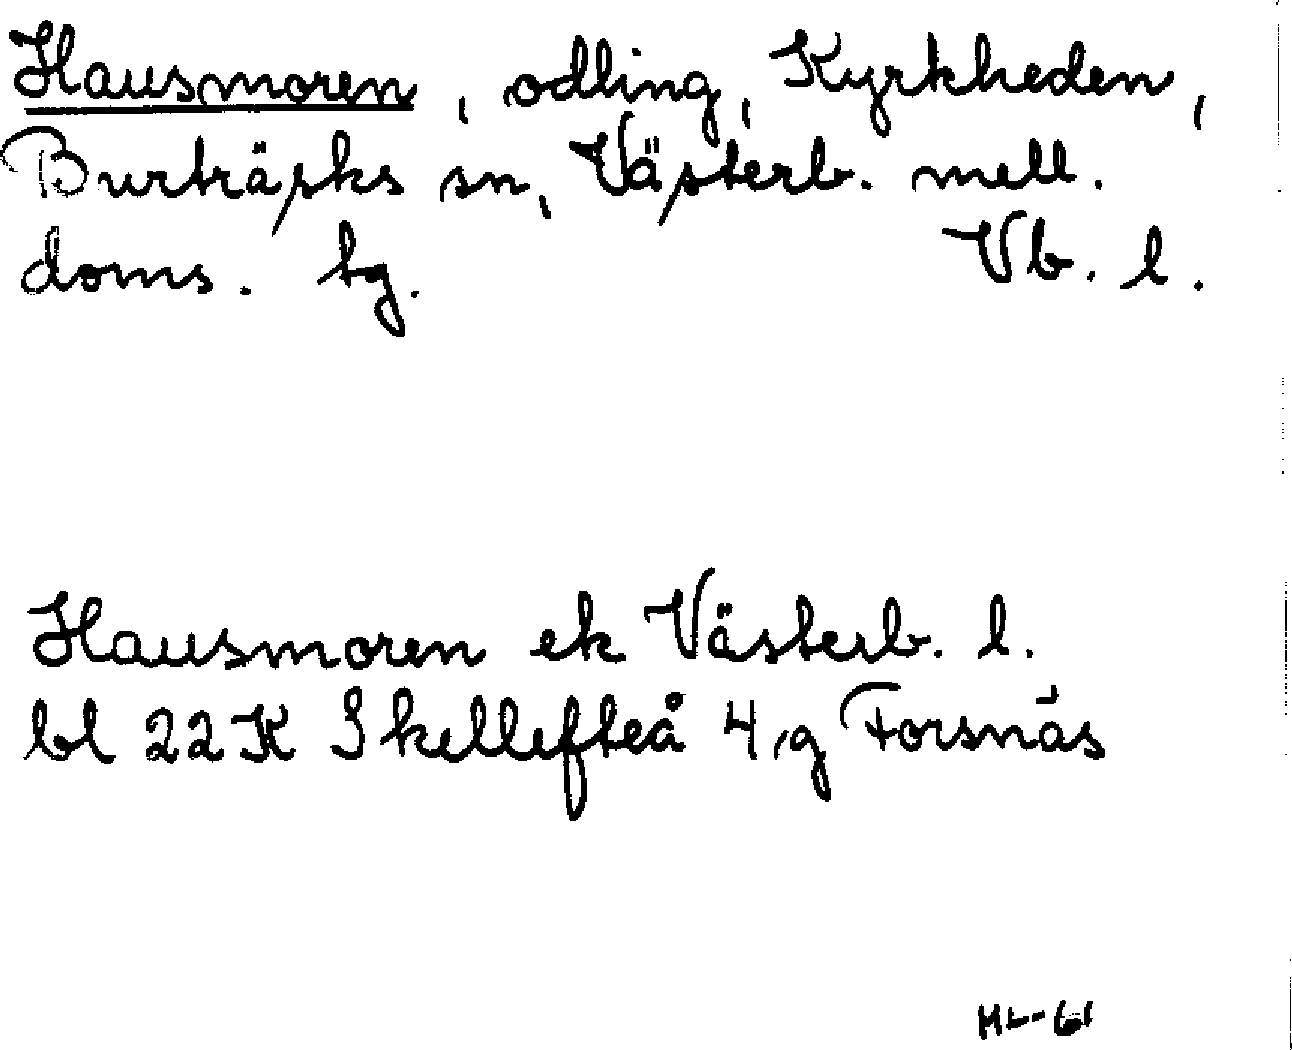 Hausmoren, odling, Kyrkheden,
Burträsks sn, Västerb. mell.
doms. tg. Vb. l.
Hausmoren ek Västerb. l.
bl 22K Skellefteå 4g Forsnäs
ML-61